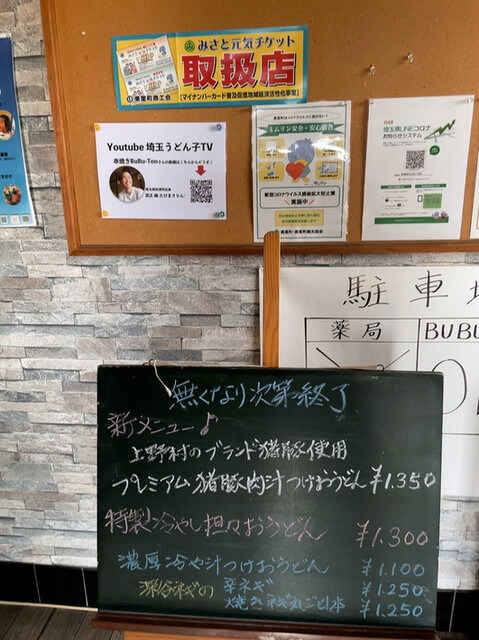 みさと元気チケット
取扱店
美里町商工会
【マイナンバーカード普及促進地域経済活性化事業】
Youtube 埼玉うどん子TV
串焼きBuBu-Tonさんの動画はこちらからどうぞ♪
ミムリン安全・安心宣言
新型コロナウイルス感染拡大防止策
実施中
美里町・美里町観光協会
埼玉県LINEコロナ
お知らせシステム
駐車場
薬局
BUBU
無くなり次第終了
新メニュー♪
上野村のブランド猪豚使用
プレミアム猪豚肉汁つけおうどん ¥1.350
特製冷やし担々おうどん ¥1.300
濃厚冷や汁つけおうどん ¥1.100
深谷ネギの 辛ネギ ¥1.250
焼きネギ丸ごと1本 ¥1.250